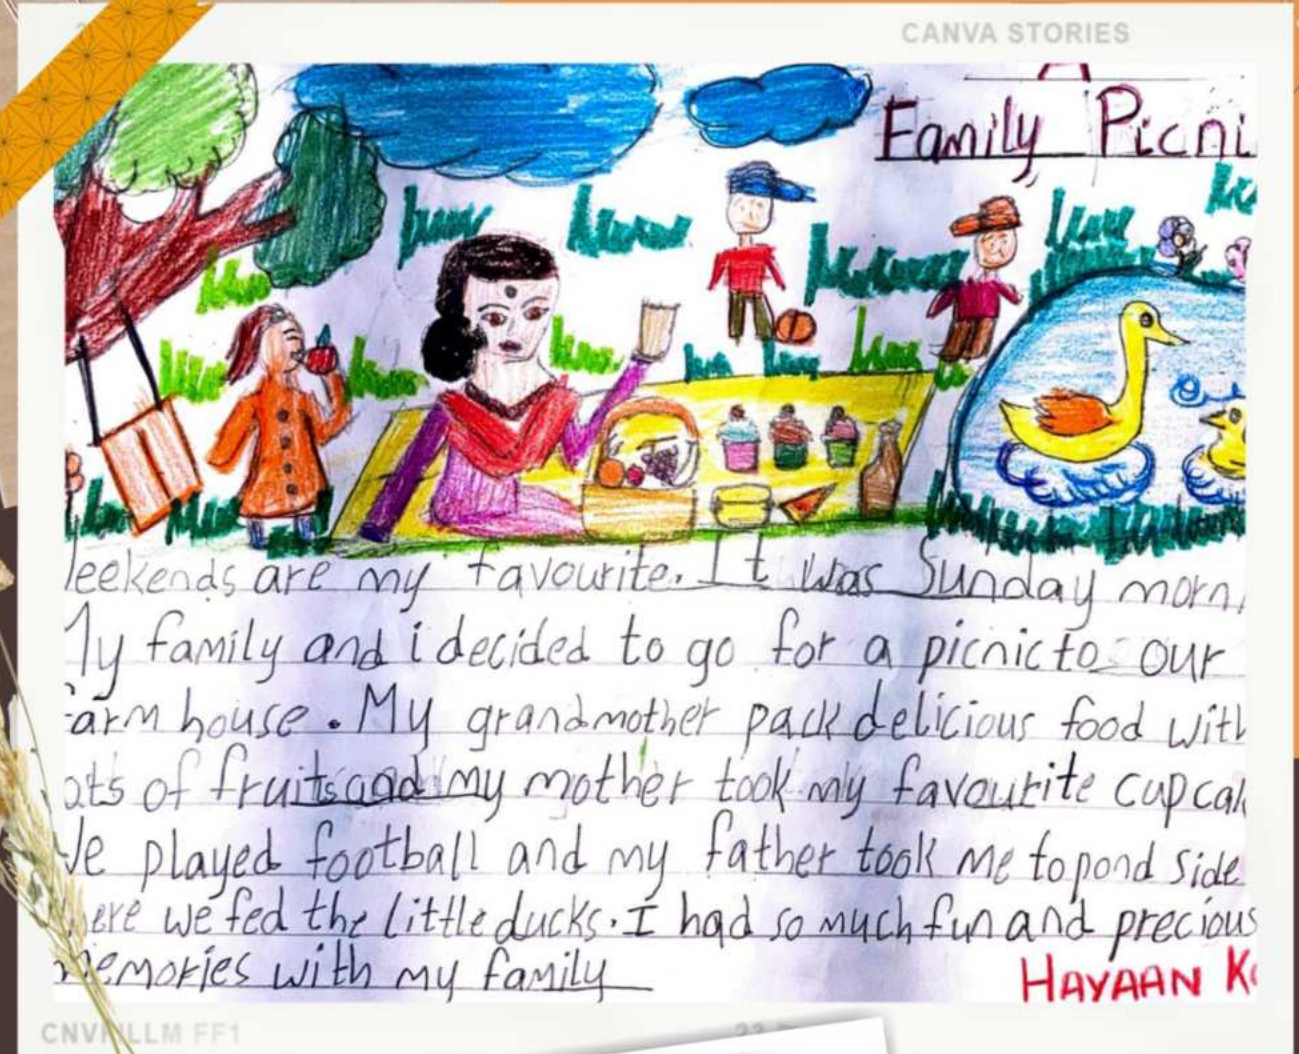 CANVA STORIES
A
Family Picni
leekends are my favourite. It was Sunday morn
My family and i decided to go for a picnic to our
arm house. My grandmother pack delicious food with
ots of fruits and my mother took my favourite cupcak
We played football and my father took me to pond side
here we fed the little ducks. I had so much fun and precious
memories with my family
HAYAAN K
CNV FILM FF1